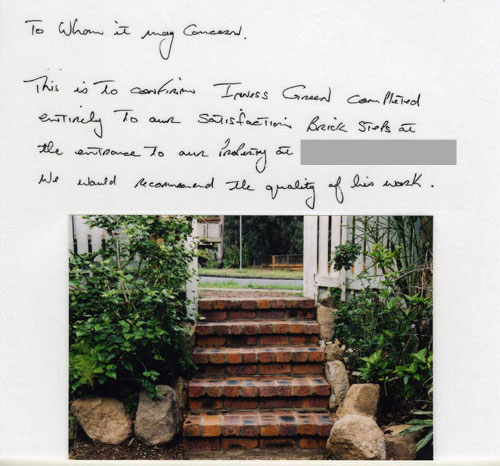 To Whom it may Concern.
This is to confirm Inness Green completed
entirely to our satisfaction Brick Steps at
the entrance to our Property at
We would recommend the quality of his work.